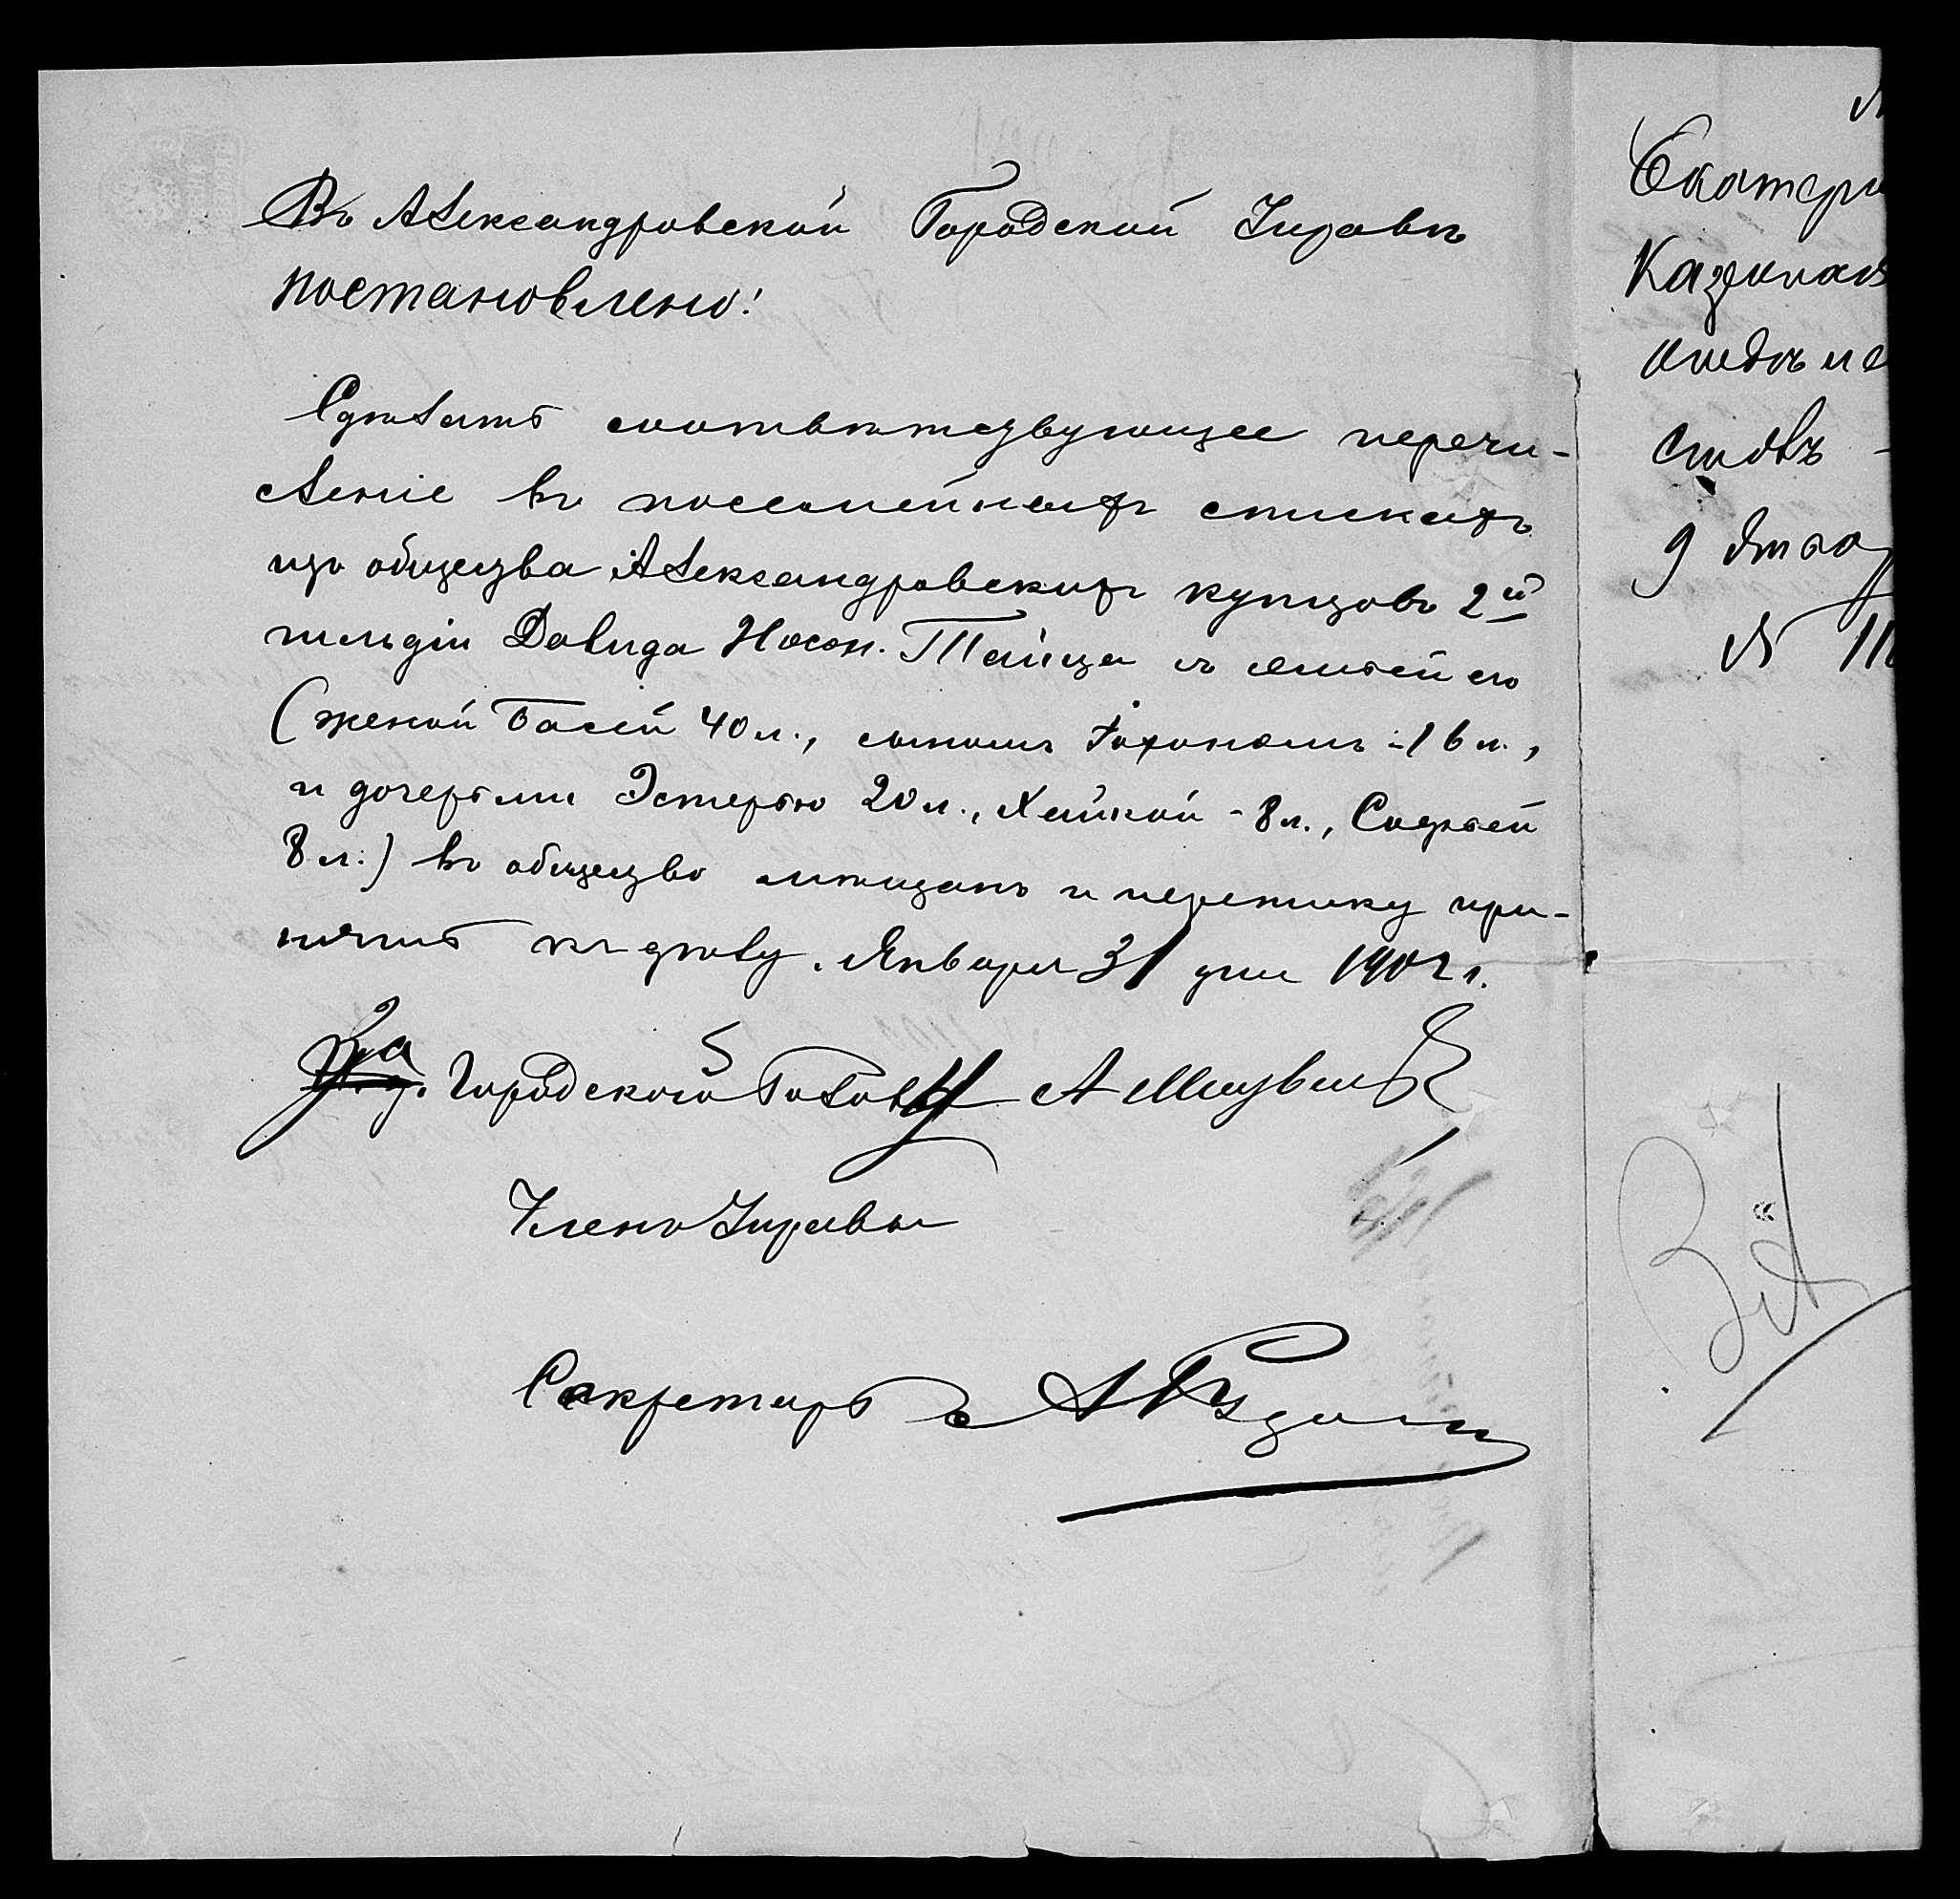 Въ Александровской Городской Управѣ
постановлено:
Сдѣлать соотвѣтствующее перечи-
сленіе въ посемейныхъ спискахъ
изъ общества Александровскихъ купцовъ 2й
гильдіи Давида Носон. Тайца съ семьей его
(женой Басей 40 л., сыномъ 16 л.,
и дочерьми Эстерью 20 л., Хайкой - 8 л., Софьей
8 л.) въ общество мѣщанъ и переписку прі-
общить къ дѣлу. Января 31 дня 1902 г.
За Городского Голову А
Членъ Управы
Секретарь А
Екатери
Казенная
столъ
9
№